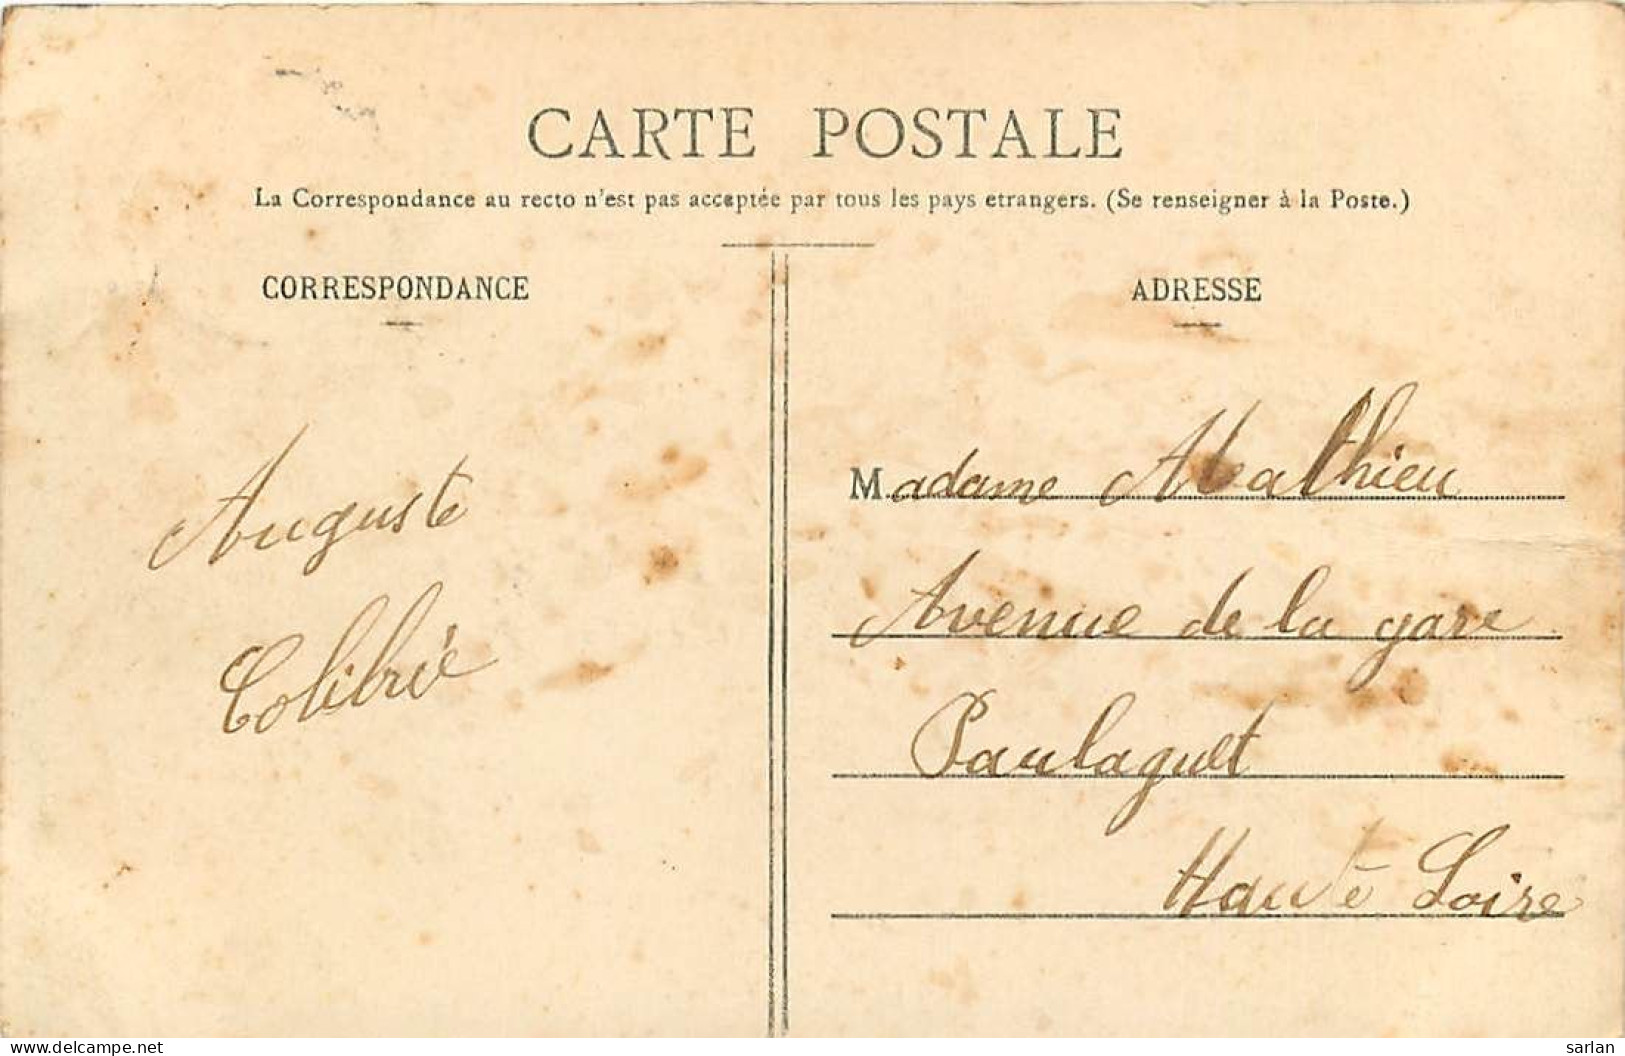 CARTE POSTALE
La Correspondance au recto n'est pas acceptée par tous les pays etrangers. (Se renseigner à la Poste.)
CORRESPONDANCE
Auguste
Colibrie
ADRESSE
Madame Mathieu
Avenue de la gare
Paulaguet
Haute Loire
www.delcampe.net
sarlan